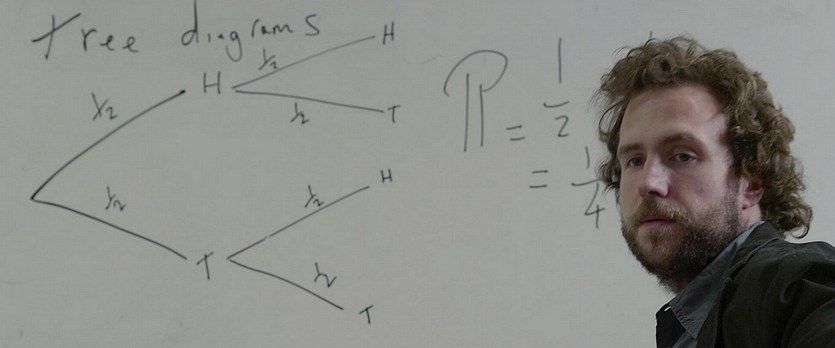 tree diagrams
H
1/2
H
1/2
1/2
T
1/2
T
1/2
H
1/2
T
P = 1/2
= 1/4